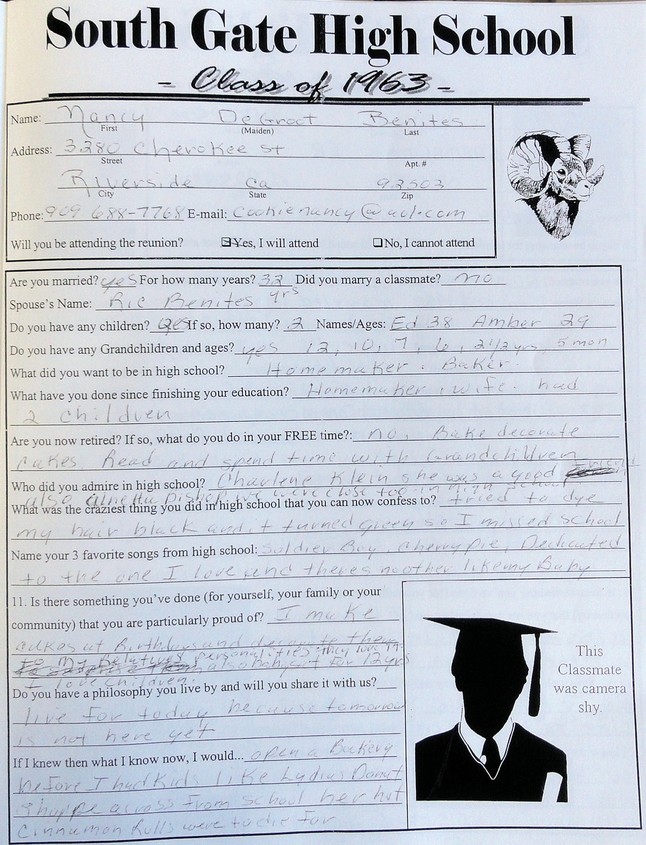 South Gate High School
- Class of 1963 -
Name: Nancy DeGroot Benites
First (Maiden) Last
Address: 3280 Cherokee St
Street Apt. #
Riverside Ca 92503
City State Zip
Phone: 909 688-7768 E-mail: Cookienancy@aol.com
Will you be attending the reunion? Yes, I will attend No, I cannot attend
Are you married? yes For how many years? 32 yrs Did you marry a classmate? no
Spouse's Name: Ric Benites
Do you have any children? yes If so, how many? 2 Names/Ages: Ed 38 Amber 29
Do you have any Grandchildren and ages? yes 12, 10, 7, 6, 2 1/2 yrs, 5 mon
What did you want to be in high school? Homemaker, Baker
What have you done since finishing your education? Homemaker, wife. had
2 children
Are you now retired? If so, what do you do in your FREE time?: no, Bake decorate
cakes Read and spend time with Grandchildren
Who did you admire in high school? Charlene Klein she was a good friend
also Bishop we were close too in high school
What was the craziest thing you did in high school that you can now confess to? tried to dye
my hair black and it turned green so I missed school
Name your 3 favorite songs from high school: Soldier Boy, Cherry Pie, Dedicated
to the one I love and theres no other like my Baby
11. Is there something you've done (for yourself, your family or your
community) that you are particularly proud of? I make
cakes at Birthdays and decorate them
to my Relatives personalities they love it
also Babysit for 12 yrs
I love children.
Do you have a philosophy you live by and will you share it with us?
live for today because tomorrow
is not here yet
If I knew then what I know now, I would... open a Bakery
before I had Kids like Lydias Donut
Shoppe across from school her hot
Cinnamon Rolls were to die for
This
Classmate
was camera
shy.